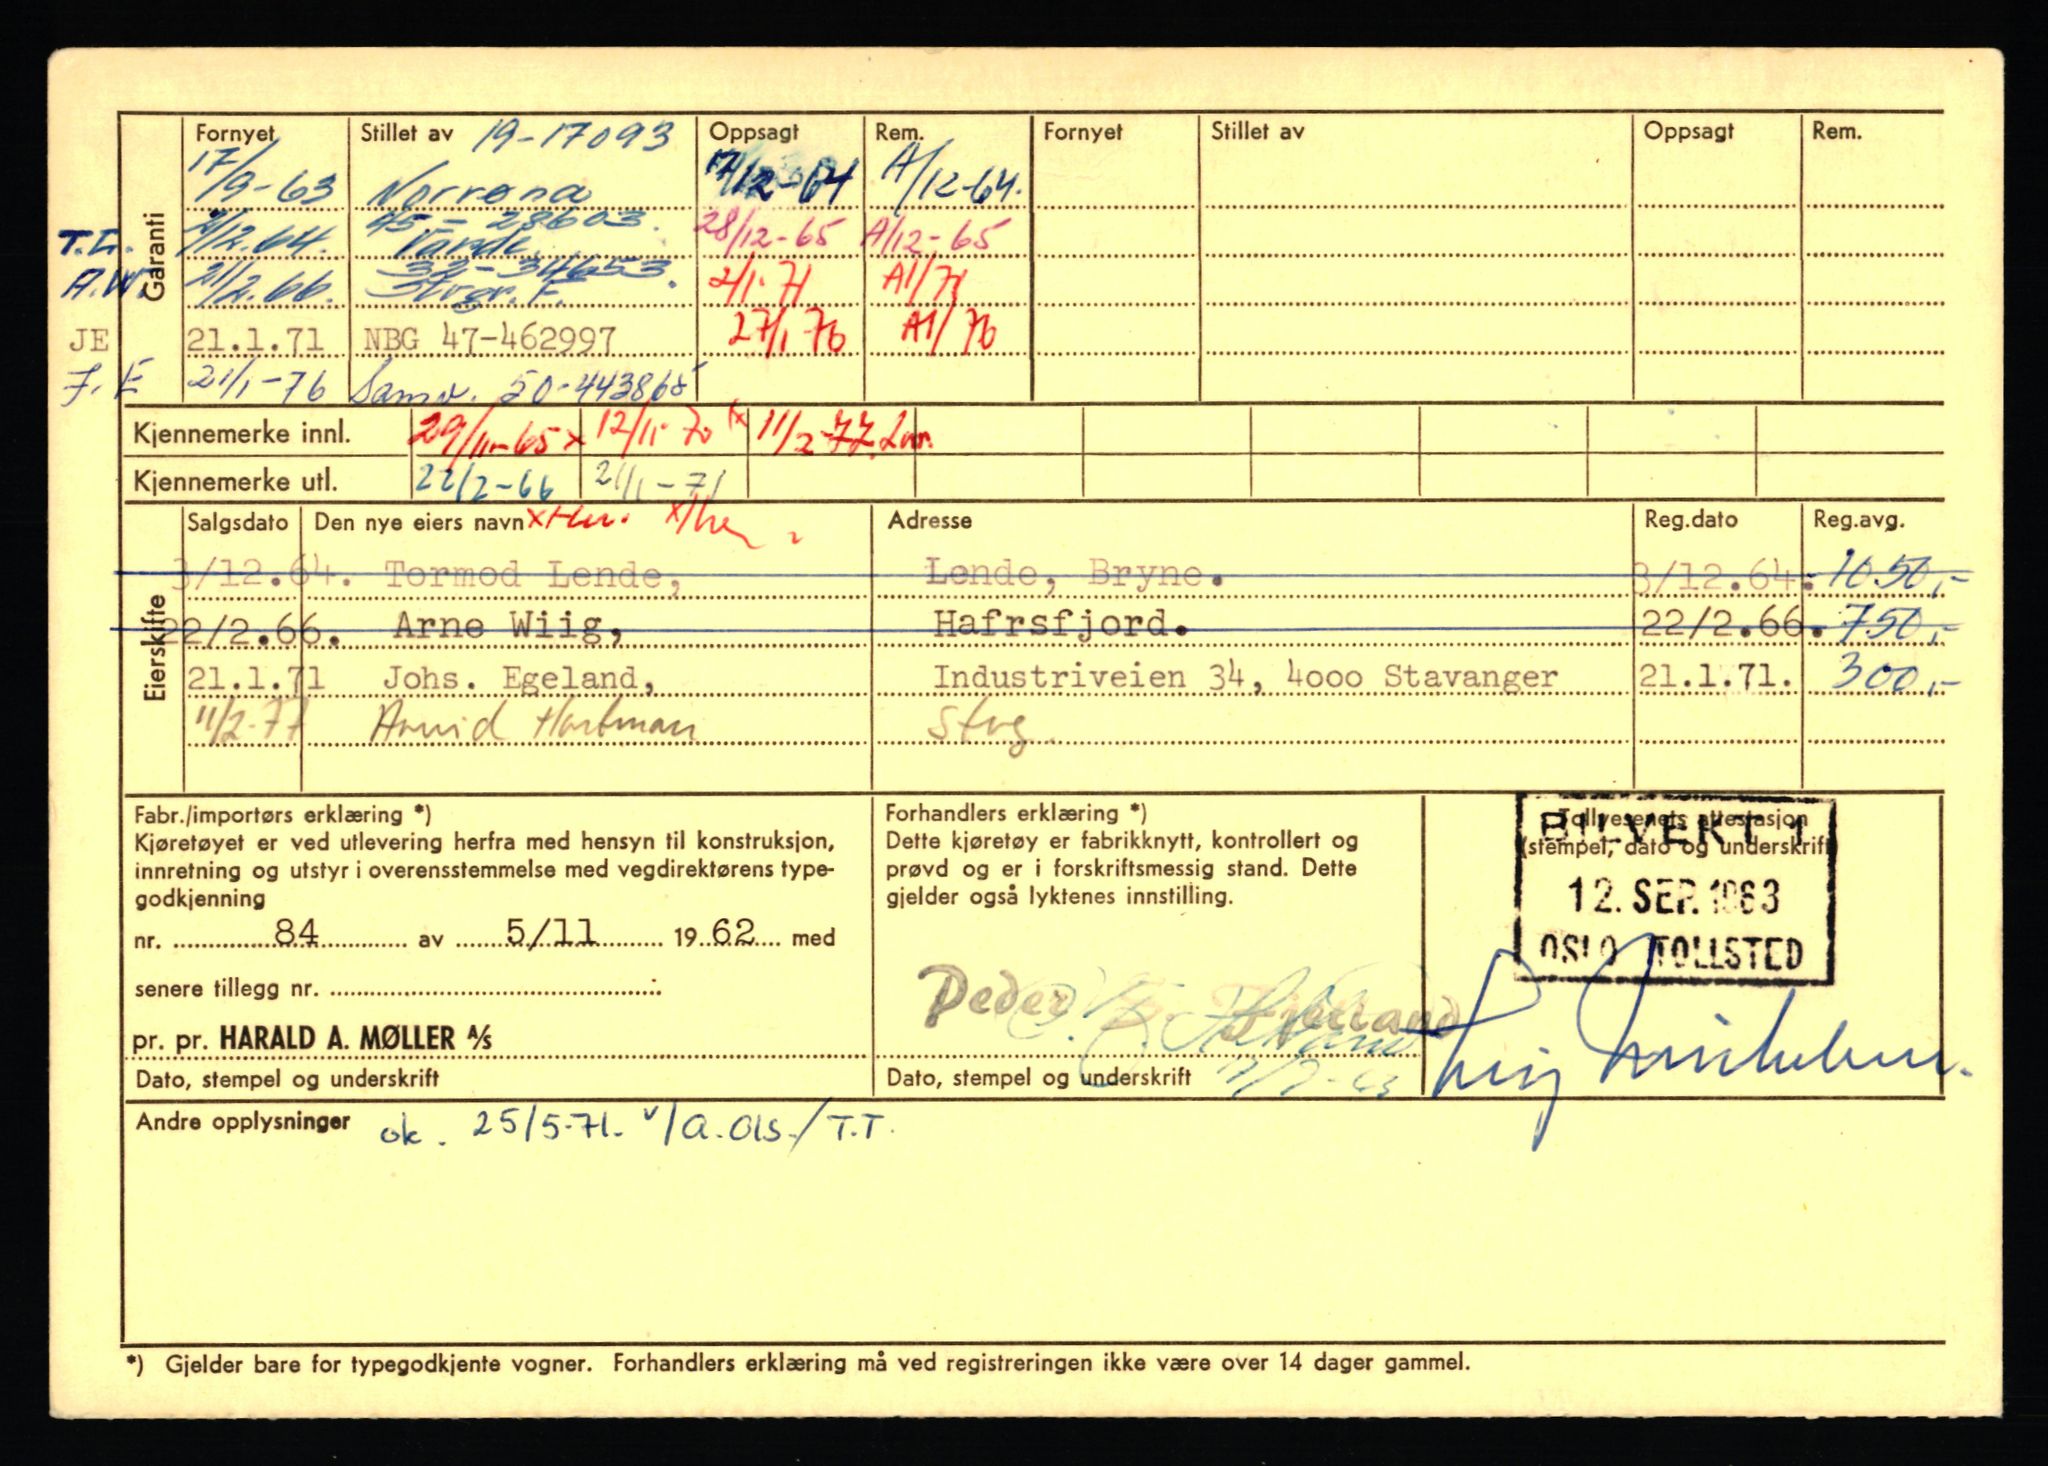 Fornyet Stillet av 19-17093 Oppsagt Rem. Fornyet Stillet av Oppsagt Rem.
Garanti
17/9-63 Norrøna 17/12-64 A/12-64.
T.L. 2/12.64. 45-28603. 28/12-65 A/12-65
A.W. 21/2.66. 33-34653. Strgr. F. 2/1.71 A1/71
JE 21.1.71 NBG 47-462997 27/1-76 A1/76
J.E 21/1-76 Samv. 50-443865
Kjennemerke innl. 29/11-65 x 12/11-70 x 11/2-77
Kjennemerke utl. 22/2-66 21/1-71
Eierskifte
Salgsdato Den nye eiers navn Adresse Reg.dato Reg.avg.
3/12.64. Tormod Lende, Lende, Bryne. 3/12.64. 1050,-
22/2.66. Arne Wiig, Hafrsfjord. 22/2.66. 750,-
21.1.71 Johs. Egeland, Industriveien 34, 4000 Stavanger 21.1.71. 300,-
11/2-77 Arvid Hartman Stvg.
Fabr./importørs erklæring *)
Kjøretøyet er ved utlevering herfra med hensyn til konstruksjon,
innretning og utstyr i overensstemmelse med vegdirektørens type-
godkjenning
nr. 84 av 5/11 1962 med
senere tillegg nr.
pr. pr. HARALD A. MØLLER A/S
Dato, stempel og underskrift
Forhandlers erklæring *)
Dette kjøretøy er fabrikknytt, kontrollert og
prøvd og er i forskriftsmessig stand. Dette
gjelder også lyktenes innstilling.
Peder
Dato, stempel og underskrift
Tollvesenets attestasjon
(stempel, dato og underskrift)
BILVEKT 1
12. SEP. 1963
OSLO TOLLSTED
Andre opplysninger ok. 25/5-71. v/A.Ols./T.T.
*) Gjelder bare for typegodkjente vogner. Forhandlers erklæring må ved registreringen ikke være over 14 dager gammel.